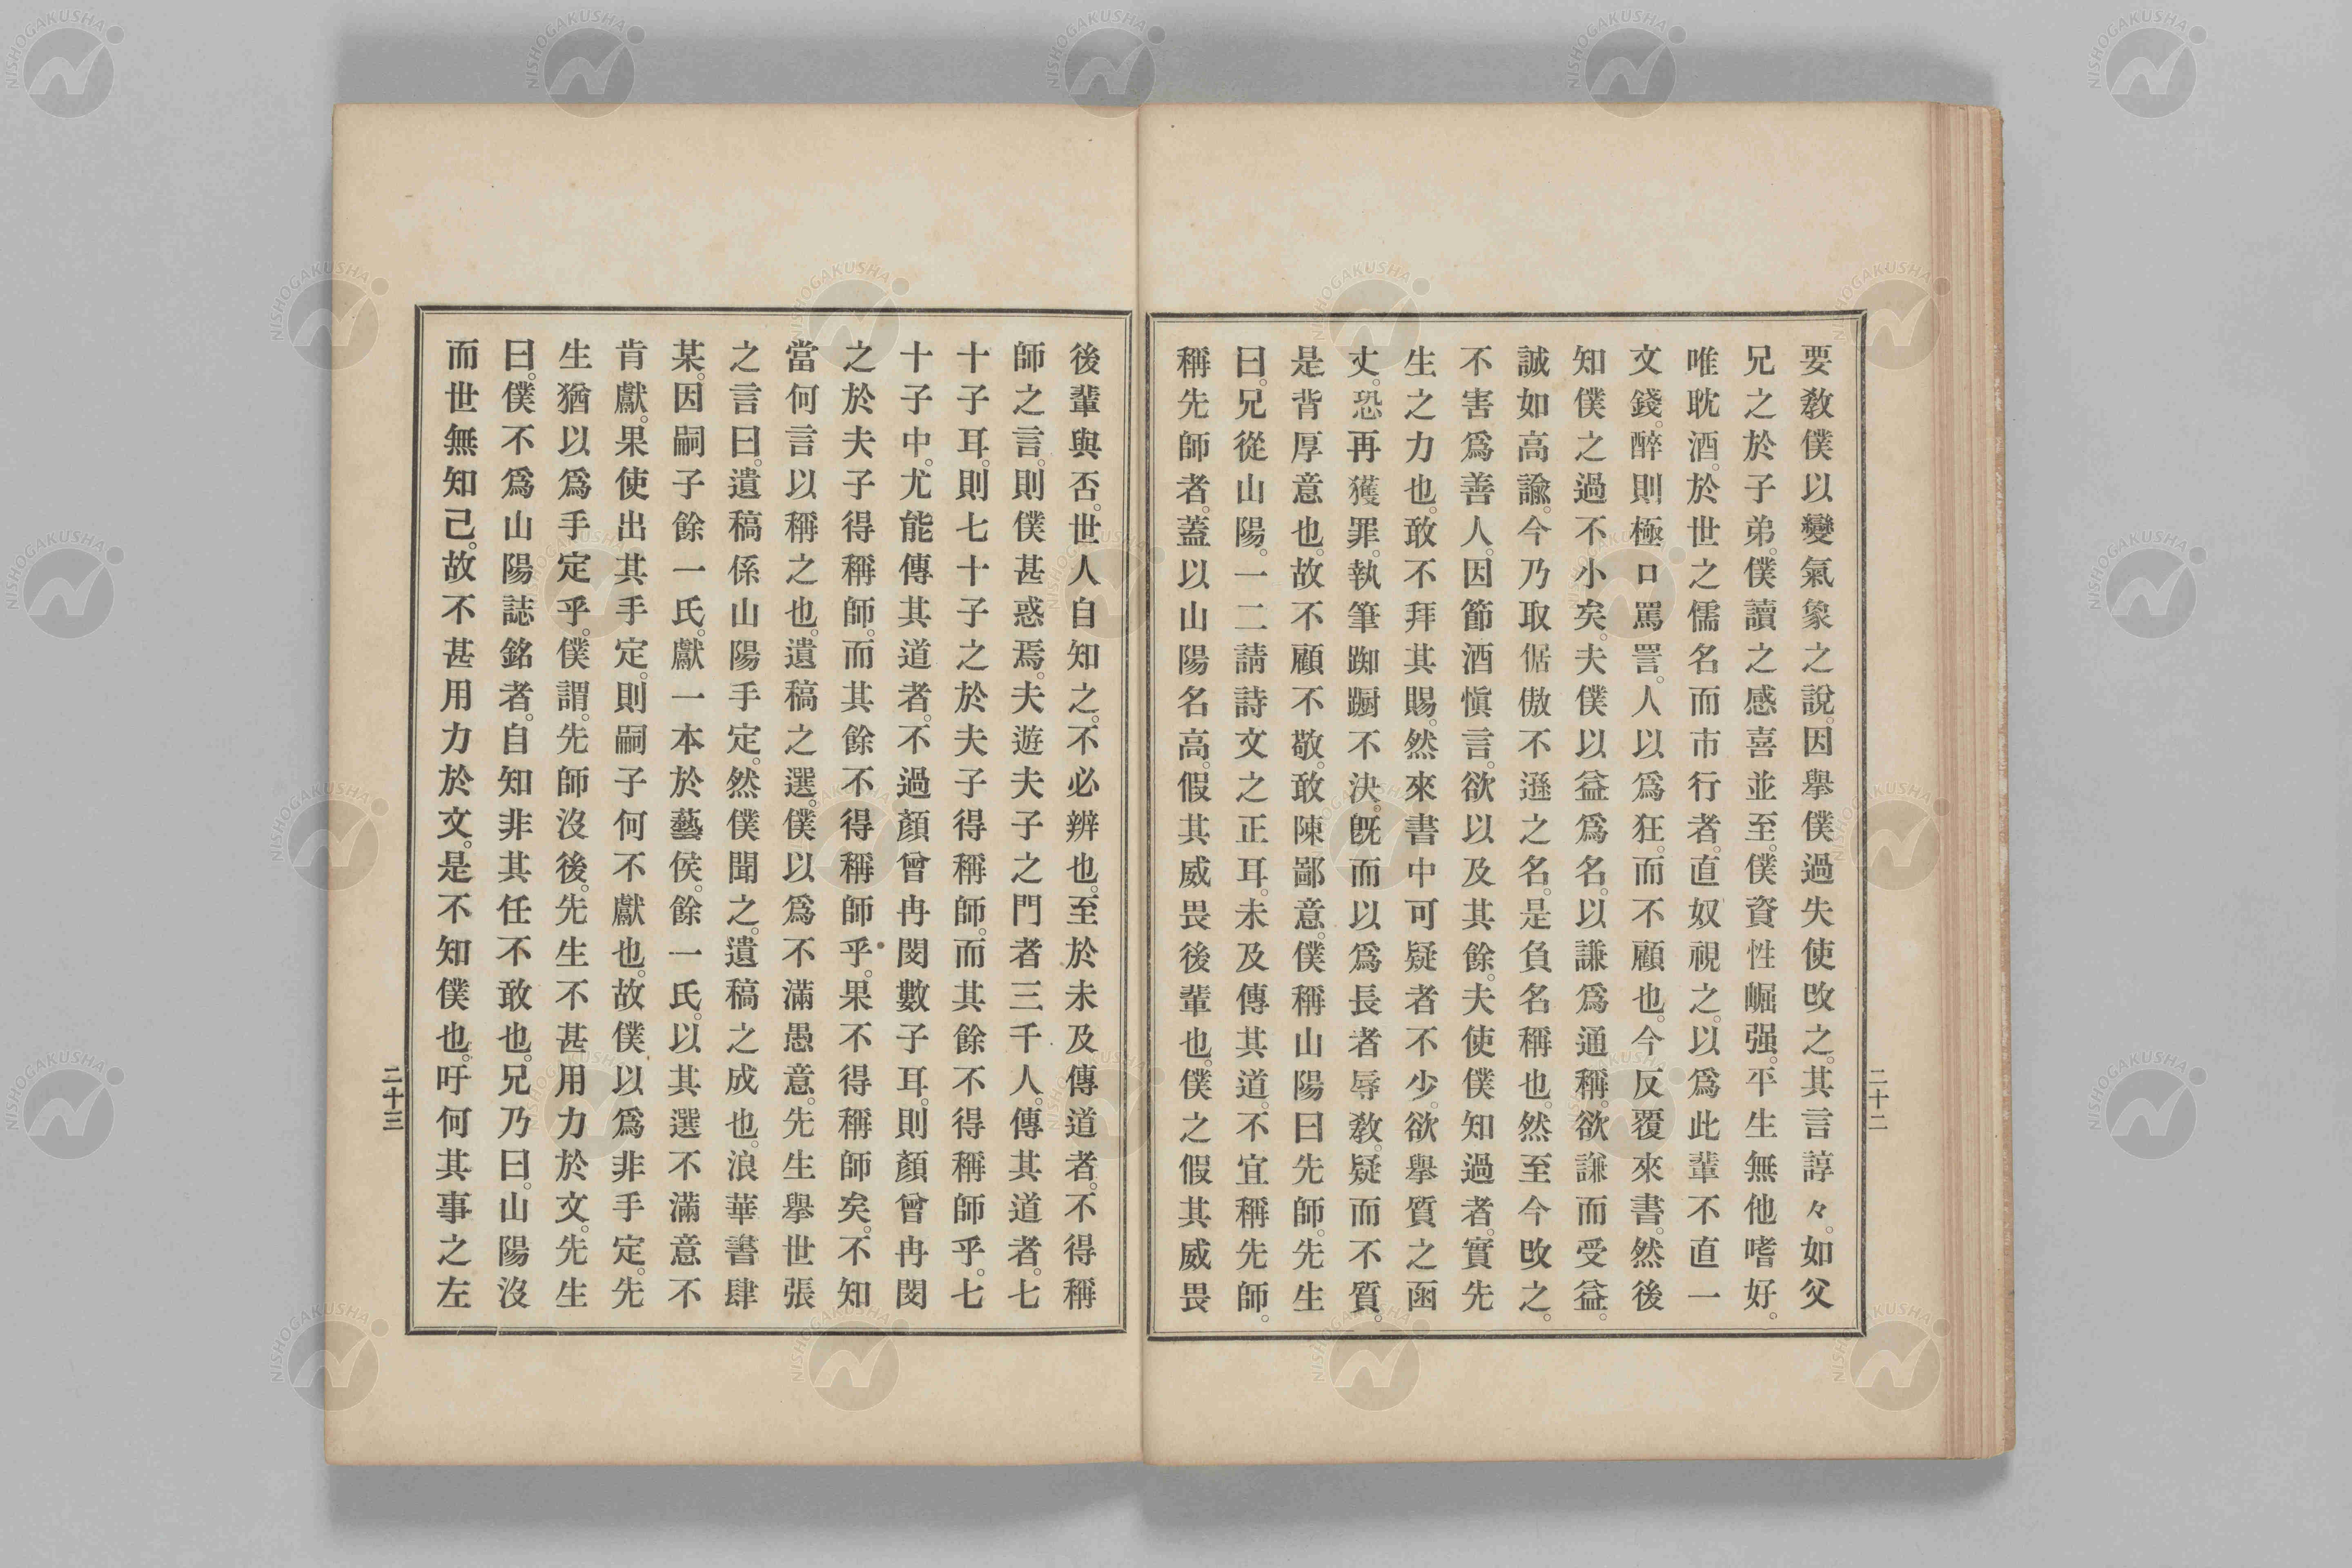 要敎僕以變氣象之說。因擧僕過失使攺之。其言諄々。如父
兄之於子弟。僕讀之感喜並至。僕資性崛强。平生無他嗜好。
唯耽酒。於世之儒名而市行者。直奴視之。以爲此輩不直一
文錢。醉則極口罵詈。人以爲狂。而不顧也。今反覆來書。然後
知僕之過不小矣。夫僕以益爲名。以謙爲通稱。欲謙而受益。
誠如高諭。今乃取倨傲不遜之名。是負名稱也。然至今攺之。
不害爲善人。因節酒愼言。欲以及其餘。夫使僕知過者。實先
生之力也。敢不拜其賜。然來書中可疑者不少。欲擧質之函
丈。恐再獲罪。執筆踟蹰不決。旣而以爲長者辱敎。疑而不質。
是背厚意也。故不顧不敬。敢陳鄙意。僕稱山陽曰先師。先生
曰。兄從山陽。一二請詩文之正耳。未及傳其道。不宜稱先師。
稱先師者。蓋以山陽名高。假其威畏後輩也。僕之假其威畏
二十二
後輩與否。世人自知之。不必辨也。至於未及傳道者。不得稱
師之言。則僕甚惑焉。夫遊夫子之門者三千人。傳其道者。七
十子耳。則七十子之於夫子得稱師。而其餘不得稱師乎。七
十子中。尤能傳其道者。不過顏曾冉閔數子耳。則顏曾冉閔
之於夫子得稱師。而其餘不得稱師乎。果不得稱師矣。不知
當何言以稱之也。遺稿之選。僕以爲不滿愚意。先生擧世張
之言曰。遺稿係山陽手定。然僕聞之。遺稿之成也。浪華書肆
某。因嗣子餘一氏。獻一本於藝侯。餘一氏。以其選不滿意不
肯獻。果使出其手定。則嗣子何不獻也。故僕以爲非手定。先
生猶以爲手定乎。僕謂。先師沒後。先生不甚用力於文。先生
曰。僕不爲山陽誌銘者。自知非其任不敢也。兄乃曰。山陽沒
而世無知己。故不甚用力於文。是不知僕也。吁何其事之左
二十三
NISHOGAKUSHA